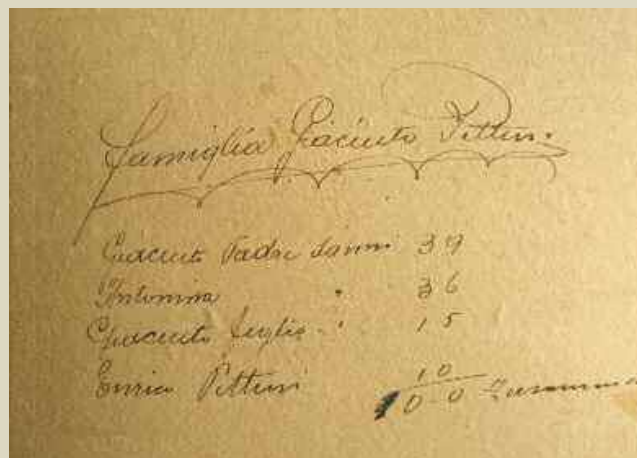 Famiglia Giacinto Pittini.
Giacinto Padre d'anni 39
Antonina " 36
Giacinto figlio " 15
Enrico Pittini 10
100 Zusammen